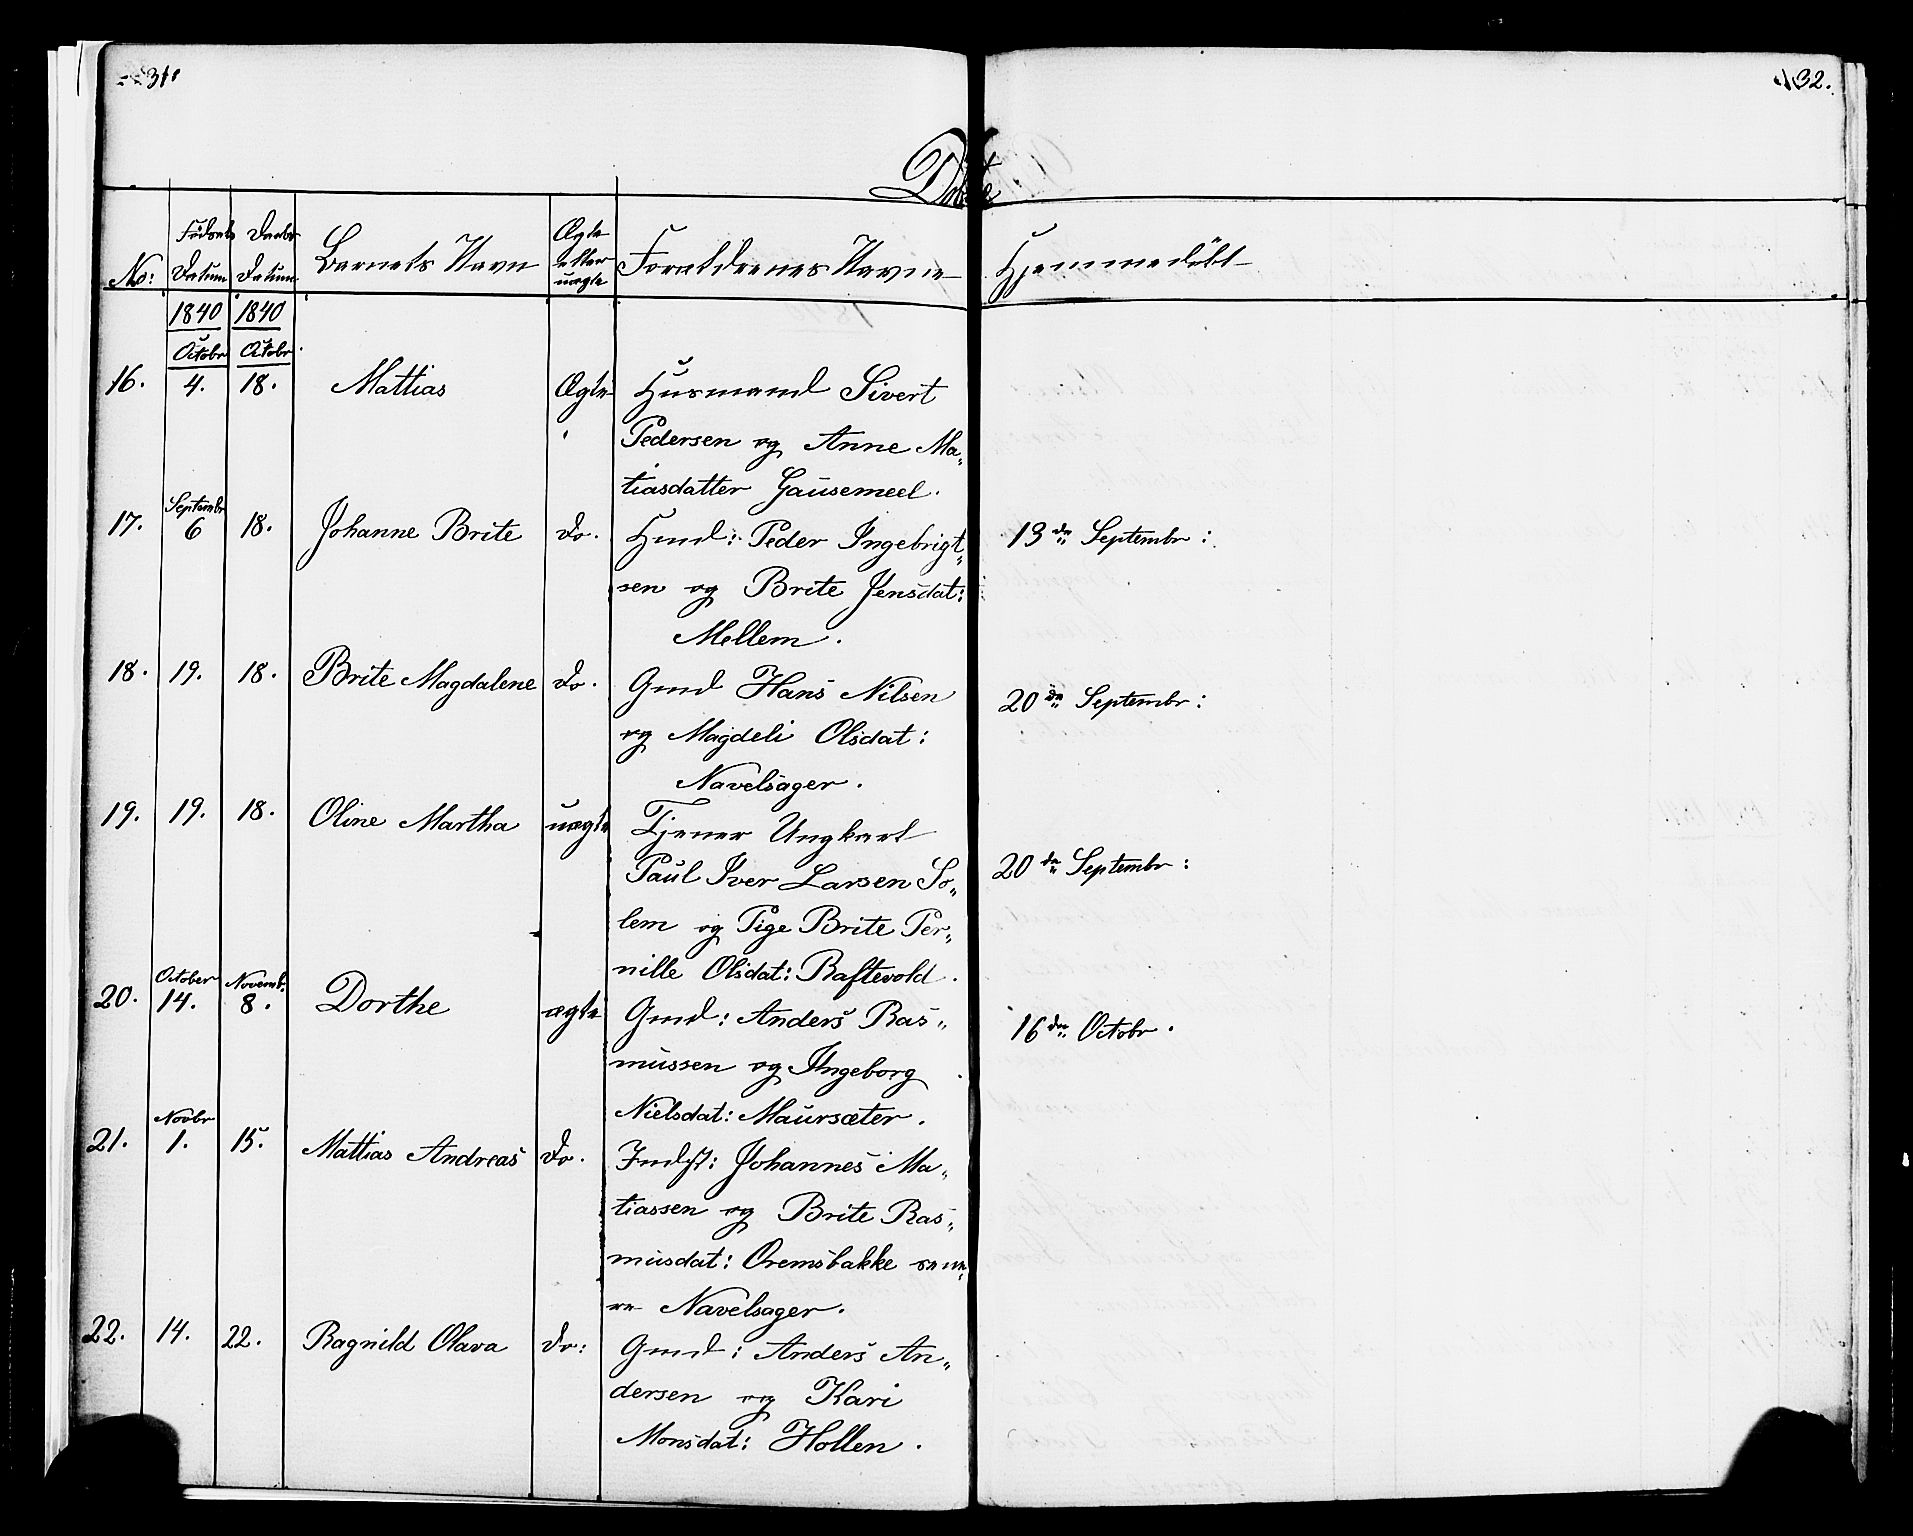 31.
32.
Døbte
No:
Födsels
Datum
Daabs
Datum
Barnets Navn
Ægte
eller
uægte
Forældrenes Navne
Hjemmedöbt
1840 1840
Octobr Octobr.
16. 4. 18. Mattias Ægte Husmand Sivert
Pedersen og Anne Ma„
tiasdatter Gausemeel.
Septembr
17. 6 18. Johanne Brite do. Hmd: Peder Ingebrigt„ 13de Septembr:
sen og Brite Jensdat:
Mellem.
18. 19. 18. Brite Magdalene do. Gmd Hans Nilsen 20de Septembr:
og Magdeli Olsdat:
Navelsager.
19. 19. 18. Oline Martha uægte Tjener Ungkarl
Paul Iver Larsen So„ 20de Septembr:
lem og Pige Brite Per„
nille Olsdat: Raftevold.
October Novemb:
20. 14. 8. Dorthe ægte Gmd: Anders Ras„ 16de Octobr.
mussen og Ingeborg
Nielsdat: Maursæter.
Novbr
21. 1. 15. Mattias Andreas do. Indst: Johannes Ma„
tiassen og Brite Ras„
musdat: Oremsbakke
Navelsager.
22. 14. 22. Ragnild Olava do: Gmd: Anders An„
dersen og Kari
Monsdat: Hollen.